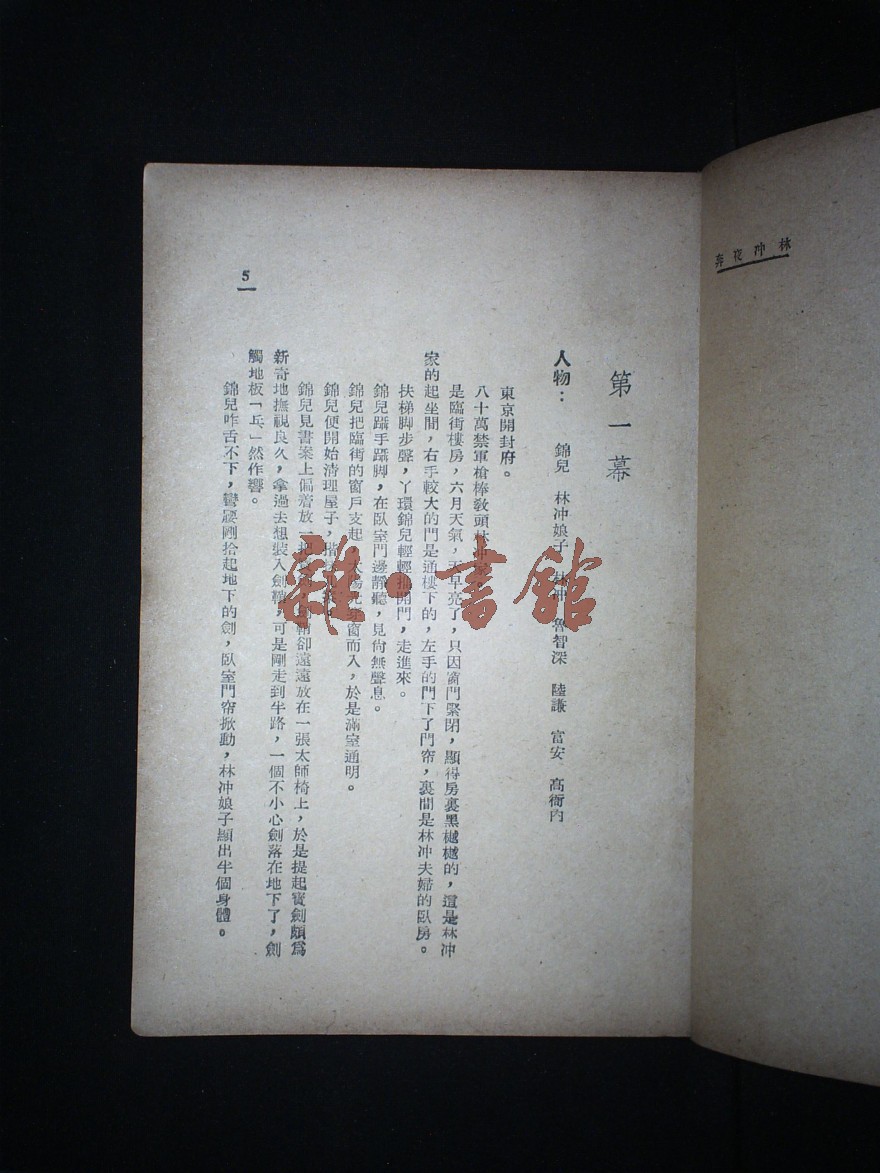 林冲夜奔
第一幕
人物： 錦兒 林冲娘子 林冲 魯智深 陸謙 富安 高衙內
東京開封府。
八十萬禁軍槍棒教頭林冲
是臨街樓房，六月天氣，天早亮了，只因窗門緊閉，顯得房裏黑樾樾的，這是林冲
家的起坐間，右手較大的門是通樓下的，左手的門下了門帘，裏間是林冲夫婦的臥房。
扶梯脚步聲，丫環錦兒輕輕推開門，走進來。
錦兒躡手躡脚，在臥室門邊靜聽，見尙無聲息。
錦兒把臨街的窗戶支起，太陽光射窗而入，於是滿室通明。
錦兒便開始清理屋子，
錦兒見書案上偏着放一把 鞘卻遠遠放在一張太師椅上，於是提起寶劍頗爲
新奇地撫視良久，拿過去想裝入劍鞘，可是剛走到半路，一個不小心劍落在地下了，劍
觸地板「乓」然作響。
錦兒咋舌不下，彎腰剛拾起地下的劍，臥室門帘掀動，林冲娘子顯出半個身體。
5
雜·書館